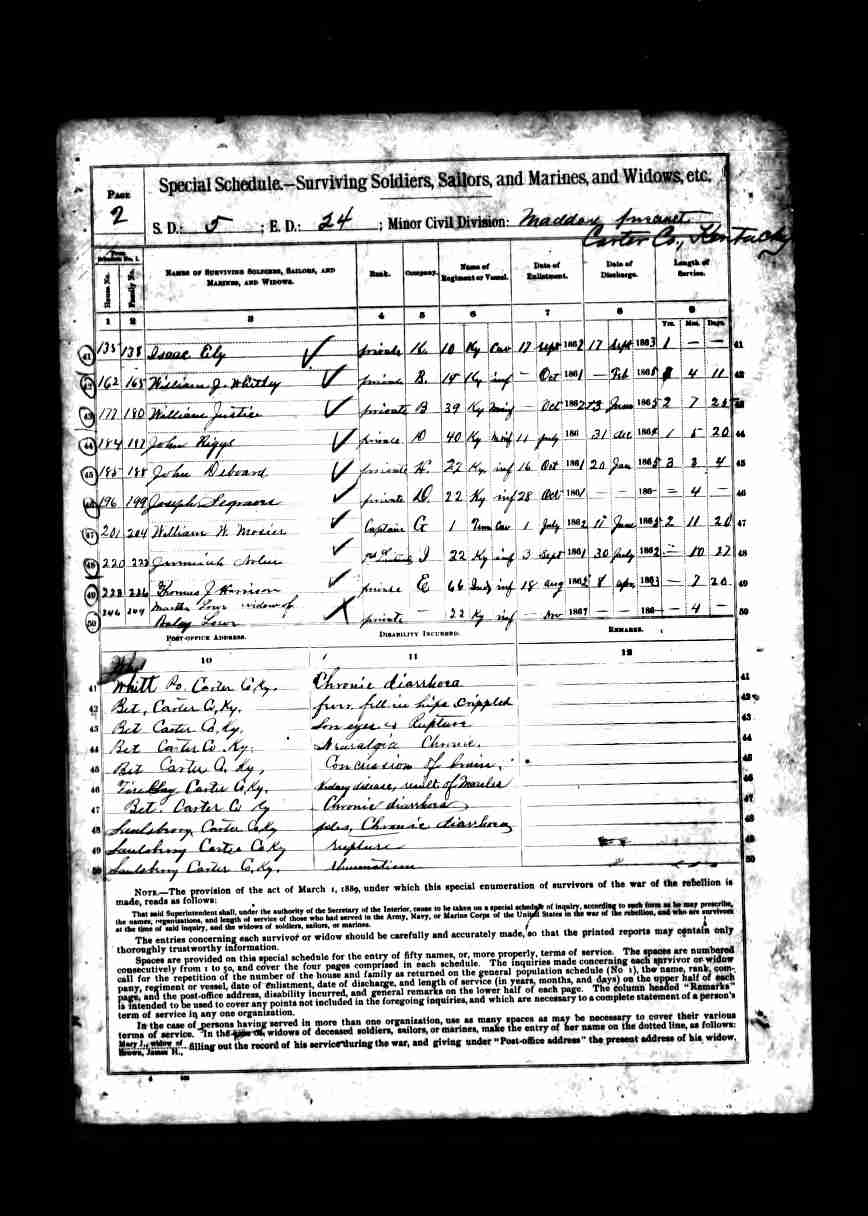 PAGE
2
Special Schedule.—Surviving Soldiers, Sailors, and Marines, and Widows, etc.
S. D.: 5 ; E. D.: 24 ; Minor Civil Division: Maddox
Carter Co., Kentucky
House No. Family No. NAMES OF SURVIVING SOLDIERS, SAILORS, AND MARINES, AND WIDOWS. Rank. Company. Name of Regiment or Vessel. Date of Enlistment. Date of Discharge. Length of Service.
1 2 3 4 5 6 7 8 9
Yrs. Mos. Days.
41 135 138 Isaac Ely private K. 10 Ky Cav 17 Sept 1862 17 Sept 1863 1 — — 41
42 162 165 William J. Whitley private B. 14 Ky inf — Oct 1861 — Feb 186 4 11 42
43 177 180 William Justice private B 39 Ky — Oct 1862 June 1865 2 7 43
44 184 187 John Riggs private D 40 Ky 11 July 186 31 dec 186 1 5 20 44
45 185 188 John Deboard private K. 22 Ky inf 16 Oct 1861 20 Jan 1865 3 3 4 45
46 196 199 Joseph private D. 22 Ky inf 28 Oct 1861 — — 186 — 4 — 46
47 201 204 William W. Mosier Captain G 1 Cav 1 July 1862 11 June 1865 2 11 20 47
48 220 223 Jerimiah I 22 Ky inf 3 Sept 1861 30 July 1862 — 10 27 48
49 223 226 Thomas J Harrison private E 66 Ind inf 18 Aug 1862 8 apr 1863 — 7 20 49
Martha widow of
50 private — 22 Ky inf — Nov 186 — — 186 — 4 — 50
POST-OFFICE ADDRESS. DISABILITY INCURRED. REMARKS.
10 11 12
41 Whitt Po. Carter Co, Ky. Chronic diarrhora 41
42 Bet, Carter Co, Ky. hips Crippled 42
43 Bet Carter Co, Ky. Sore eyes & Rupture 43
44 Bet Carter Co. Ky. Neuralgia Chronic. 44
45 Bet Carter Co Ky, Concussion of brain, 45
46 Fire Clay Carter Co, Ky. Kidney disease, result of Measles 46
47 Bet Carter Co Ky Chronic diarrhora 47
48 Saulsbrory Carter Co, Ky piles, Chronic diarrhora 48
49 Saulsbrory Carter Co Ky rupture 49
50 Saulsbrory Carter Co, Ky. rheumatism 50
NOTE.—The provision of the act of March 1, 1889, under which this special enumeration of survivors of the war of the rebellion is
made, reads as follows:
That said Superintendent shall, under the authority of the Secretary of the Interior, cause to be taken on a special schedule of inquiry, according to such form as he may prescribe,
the names, organizations, and length of service of those who had served in the Army, Navy, or Marine Corps of the United States in the war of the rebellion, and who are survivors
at the time of said inquiry, and the widows of soldiers, sailors, or marines.
The entries concerning each survivor or widow should be carefully and accurately made, so that the printed reports may contain only
thoroughly trustworthy information.
Spaces are provided on this special schedule for the entry of fifty names, or, more properly, terms of service. The spaces are numbered
consecutively from 1 to 50, and cover the four pages comprised in each schedule. The inquiries made concerning each survivor or widow
call for the repetition of the number of the house and family as returned on the general population schedule (No 1), the name, rank, com-
pany, regiment or vessel, date of enlistment, date of discharge, and length of service (in years, months, and days) on the upper half of each
page, and the post-office address, disability incurred, and general remarks on the lower half of each page. The column headed "Remarks"
is intended to be used to cover any points not included in the foregoing inquiries, and which are necessary to a complete statement of a person's
term of service in any one organization.
In the case of persons having served in more than one organization, use as many spaces as may be necessary to cover their various
terms of service. In the case of widows of deceased soldiers, sailors, or marines, make the entry of her name on the dotted line, as follows:
Mary J., widow of
Brown, James H., filling out the record of his service during the war, and giving under "Post-office address" the present address of his widow.